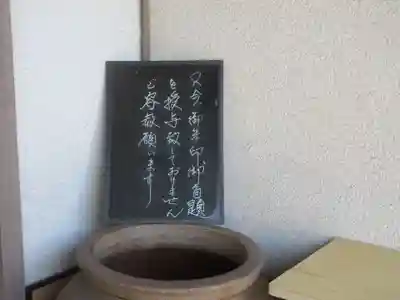 只今、御朱印・御首題
を授与致しておりません
ご容赦願います